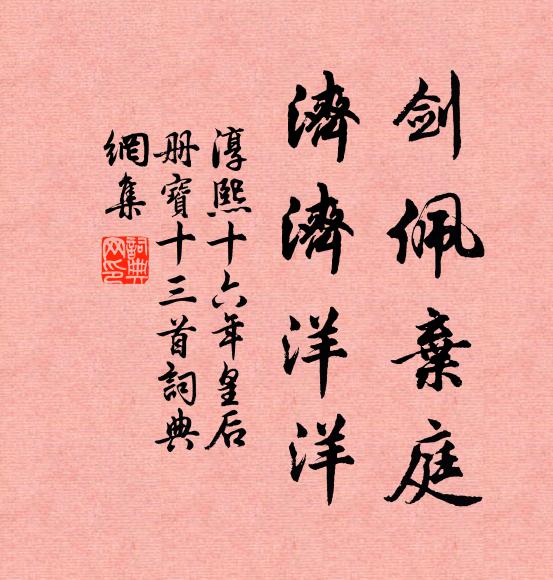 剑佩棄庭
濟濟洋洋
淳熙十六年皇后
册寶十三首詞典
網集
詞典網印